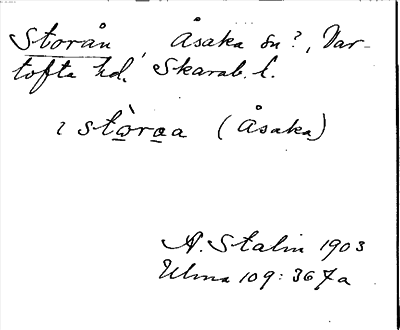 Storån, Åsaka sn?, Var-
tofta hd. Skarab. l.
i stòraa (Åsaka)
A. Stalin 1903
Ulma 109: 367a